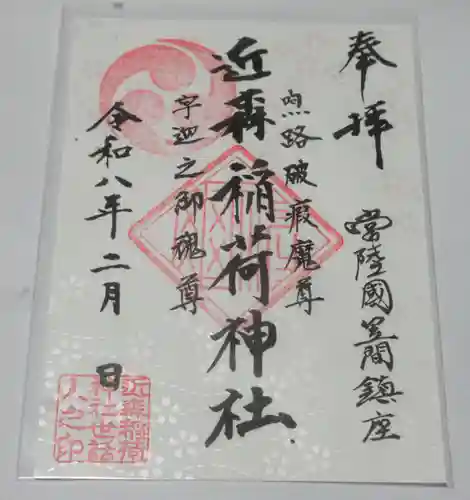 奉拝
常陸國笠間鎮座
路破瘕魔尊
近森稲荷神社
宇迦之御魂尊
令和八年二月 日
近森稲荷
神社世話
人之印